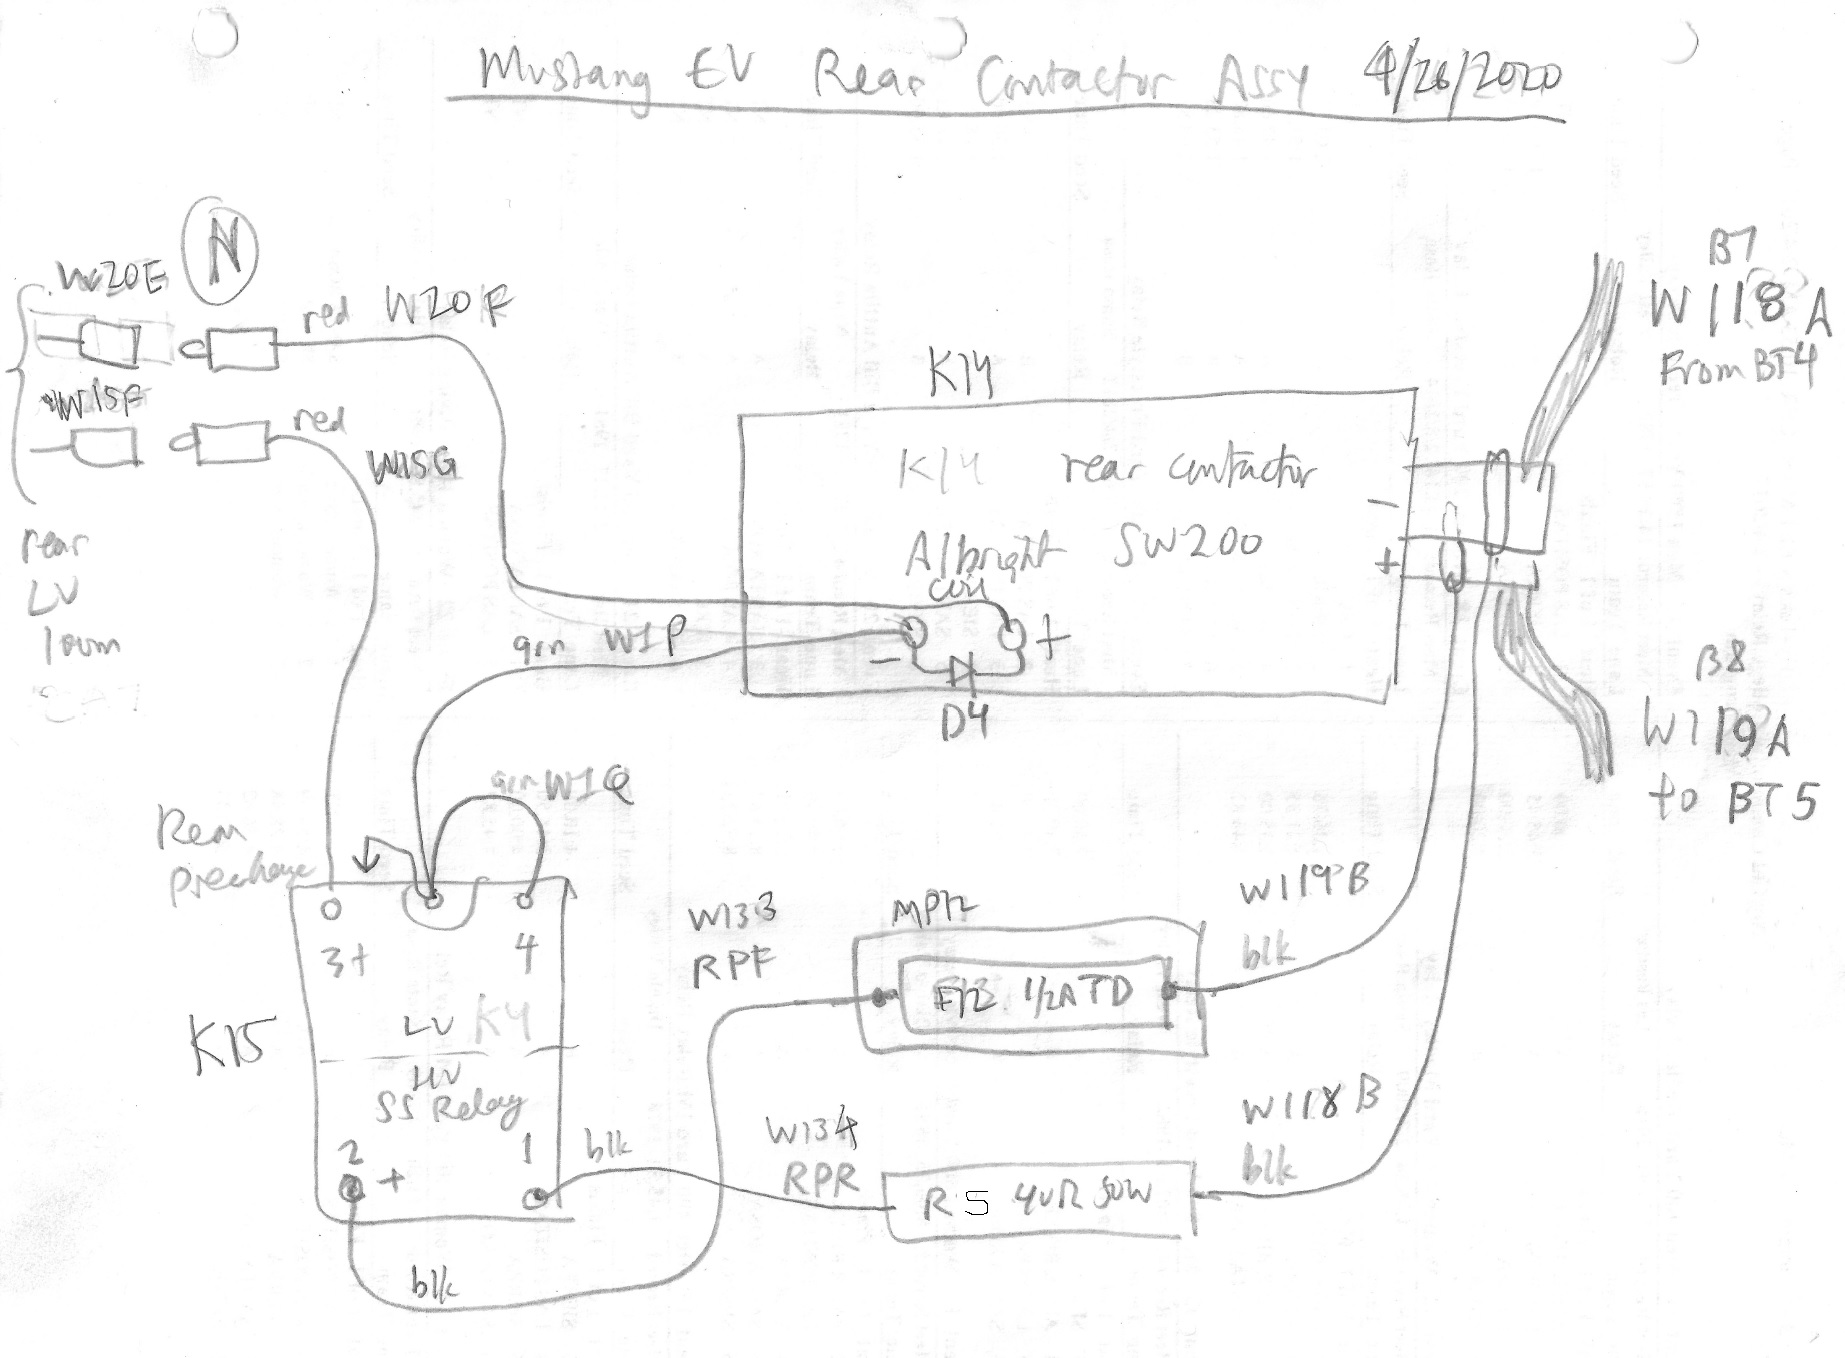 Mustang EV Rear Contactor Assy 4/26/2020
N
W20E
red W20F
W15F
red
W15G
rear
LV
loom
K14
K14 rear contactor
Albright SW200
coil
-
+
- +
D4
B7
W118A
From BT4
B8
W119A
to BT5
grn W1P
grn W1Q
Rear
Precharge
3+ 4
LV K4
HV
SS Relay
K15
2 + 1
blk
blk
W133
RPF
MP12
F12 1/2A TD
W119B
blk
W134
RPR
R5 40R 50W
W118B
blk